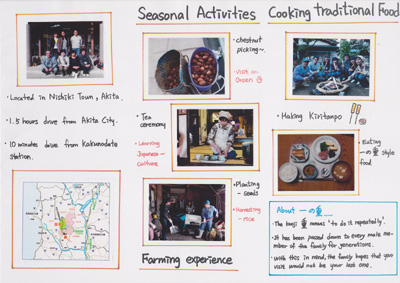 • Located in Nishiki Town, Akita.
• 1.5 hours drive from Akita City.
• 10 minutes drive from Kakunodate
station.
Seasonal Activities
• chestnut
picking~.
• Visit an
Onsen
• Tea
ceremony
• Learning
Japanese
Culture
• Planting
- seeds
• Harvesting
- rice
Farming experience
Cooking Traditional Food
• Making Kiritanpo
• Eating
style
food
About 一の重
• The kanji 重 means "to do it repeatedly".
• It has been passed down to every male mem-
ber of the family for generations.
• With this in mind, the family hopes that your
visit would not be your last one.